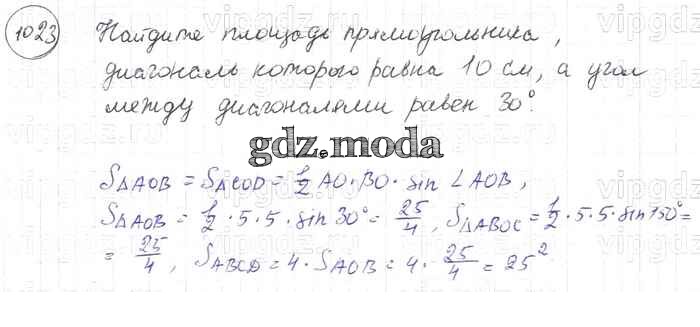 1023 Найдите площадь прямоугольника,
диагональ которого равна 10 см, а угол
между диагоналями равен 30°.
gdz.moda
S△AOB = S△COD = 1/2 AO · BO · sin ∠AOB,
S△AOB = 1/2 · 5 · 5 · sin 30° = 25/4, S△ABOC = 1/2 · 5 · 5 · sin 150° =
= 25/4, SABCD = 4 · SAOB = 4 · 25/4 = 25²